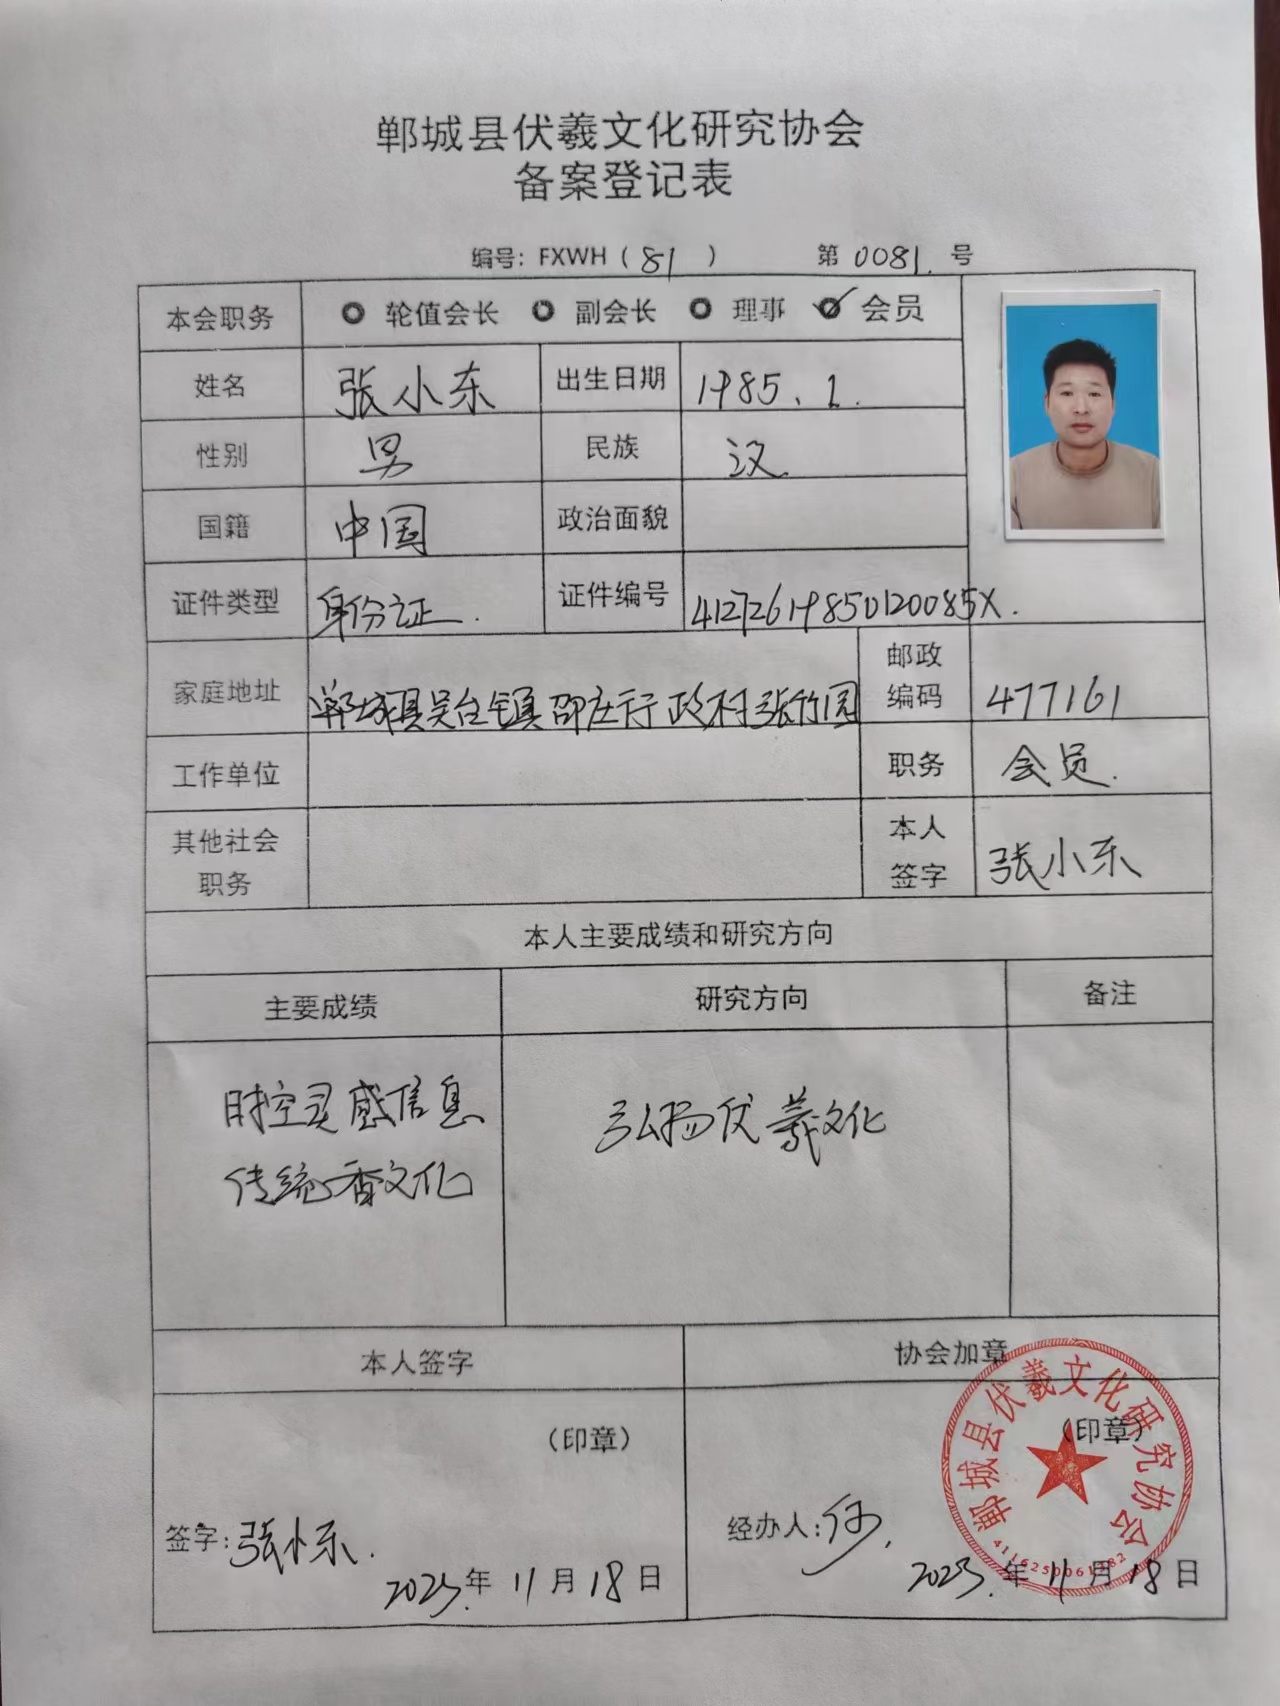 郸城县伏羲文化研究协会
备案登记表
编号：FXWH（81） 第0081.号
本会职务 轮值会长 副会长 理事 会员
姓名 张小东 出生日期 1985.1.
性别 男 民族 汉
国籍 中国 政治面貌
证件类型 身份证. 证件编号 41272619850120085X.
家庭地址 郸城县吴台镇邵庄行政村张竹园 邮政编码 477161
工作单位 职务 会员.
其他社会职务 本人签字 张小东
本人主要成绩和研究方向
主要成绩 研究方向 备注
时空灵感信息
传统香文化
弘扬伏羲文化
本人签字 协会加章
（印章） （印章）
签字：张小东. 经办人：
2023.年11月18日 2023.年11月18日
郸城县伏羲文化研究协会